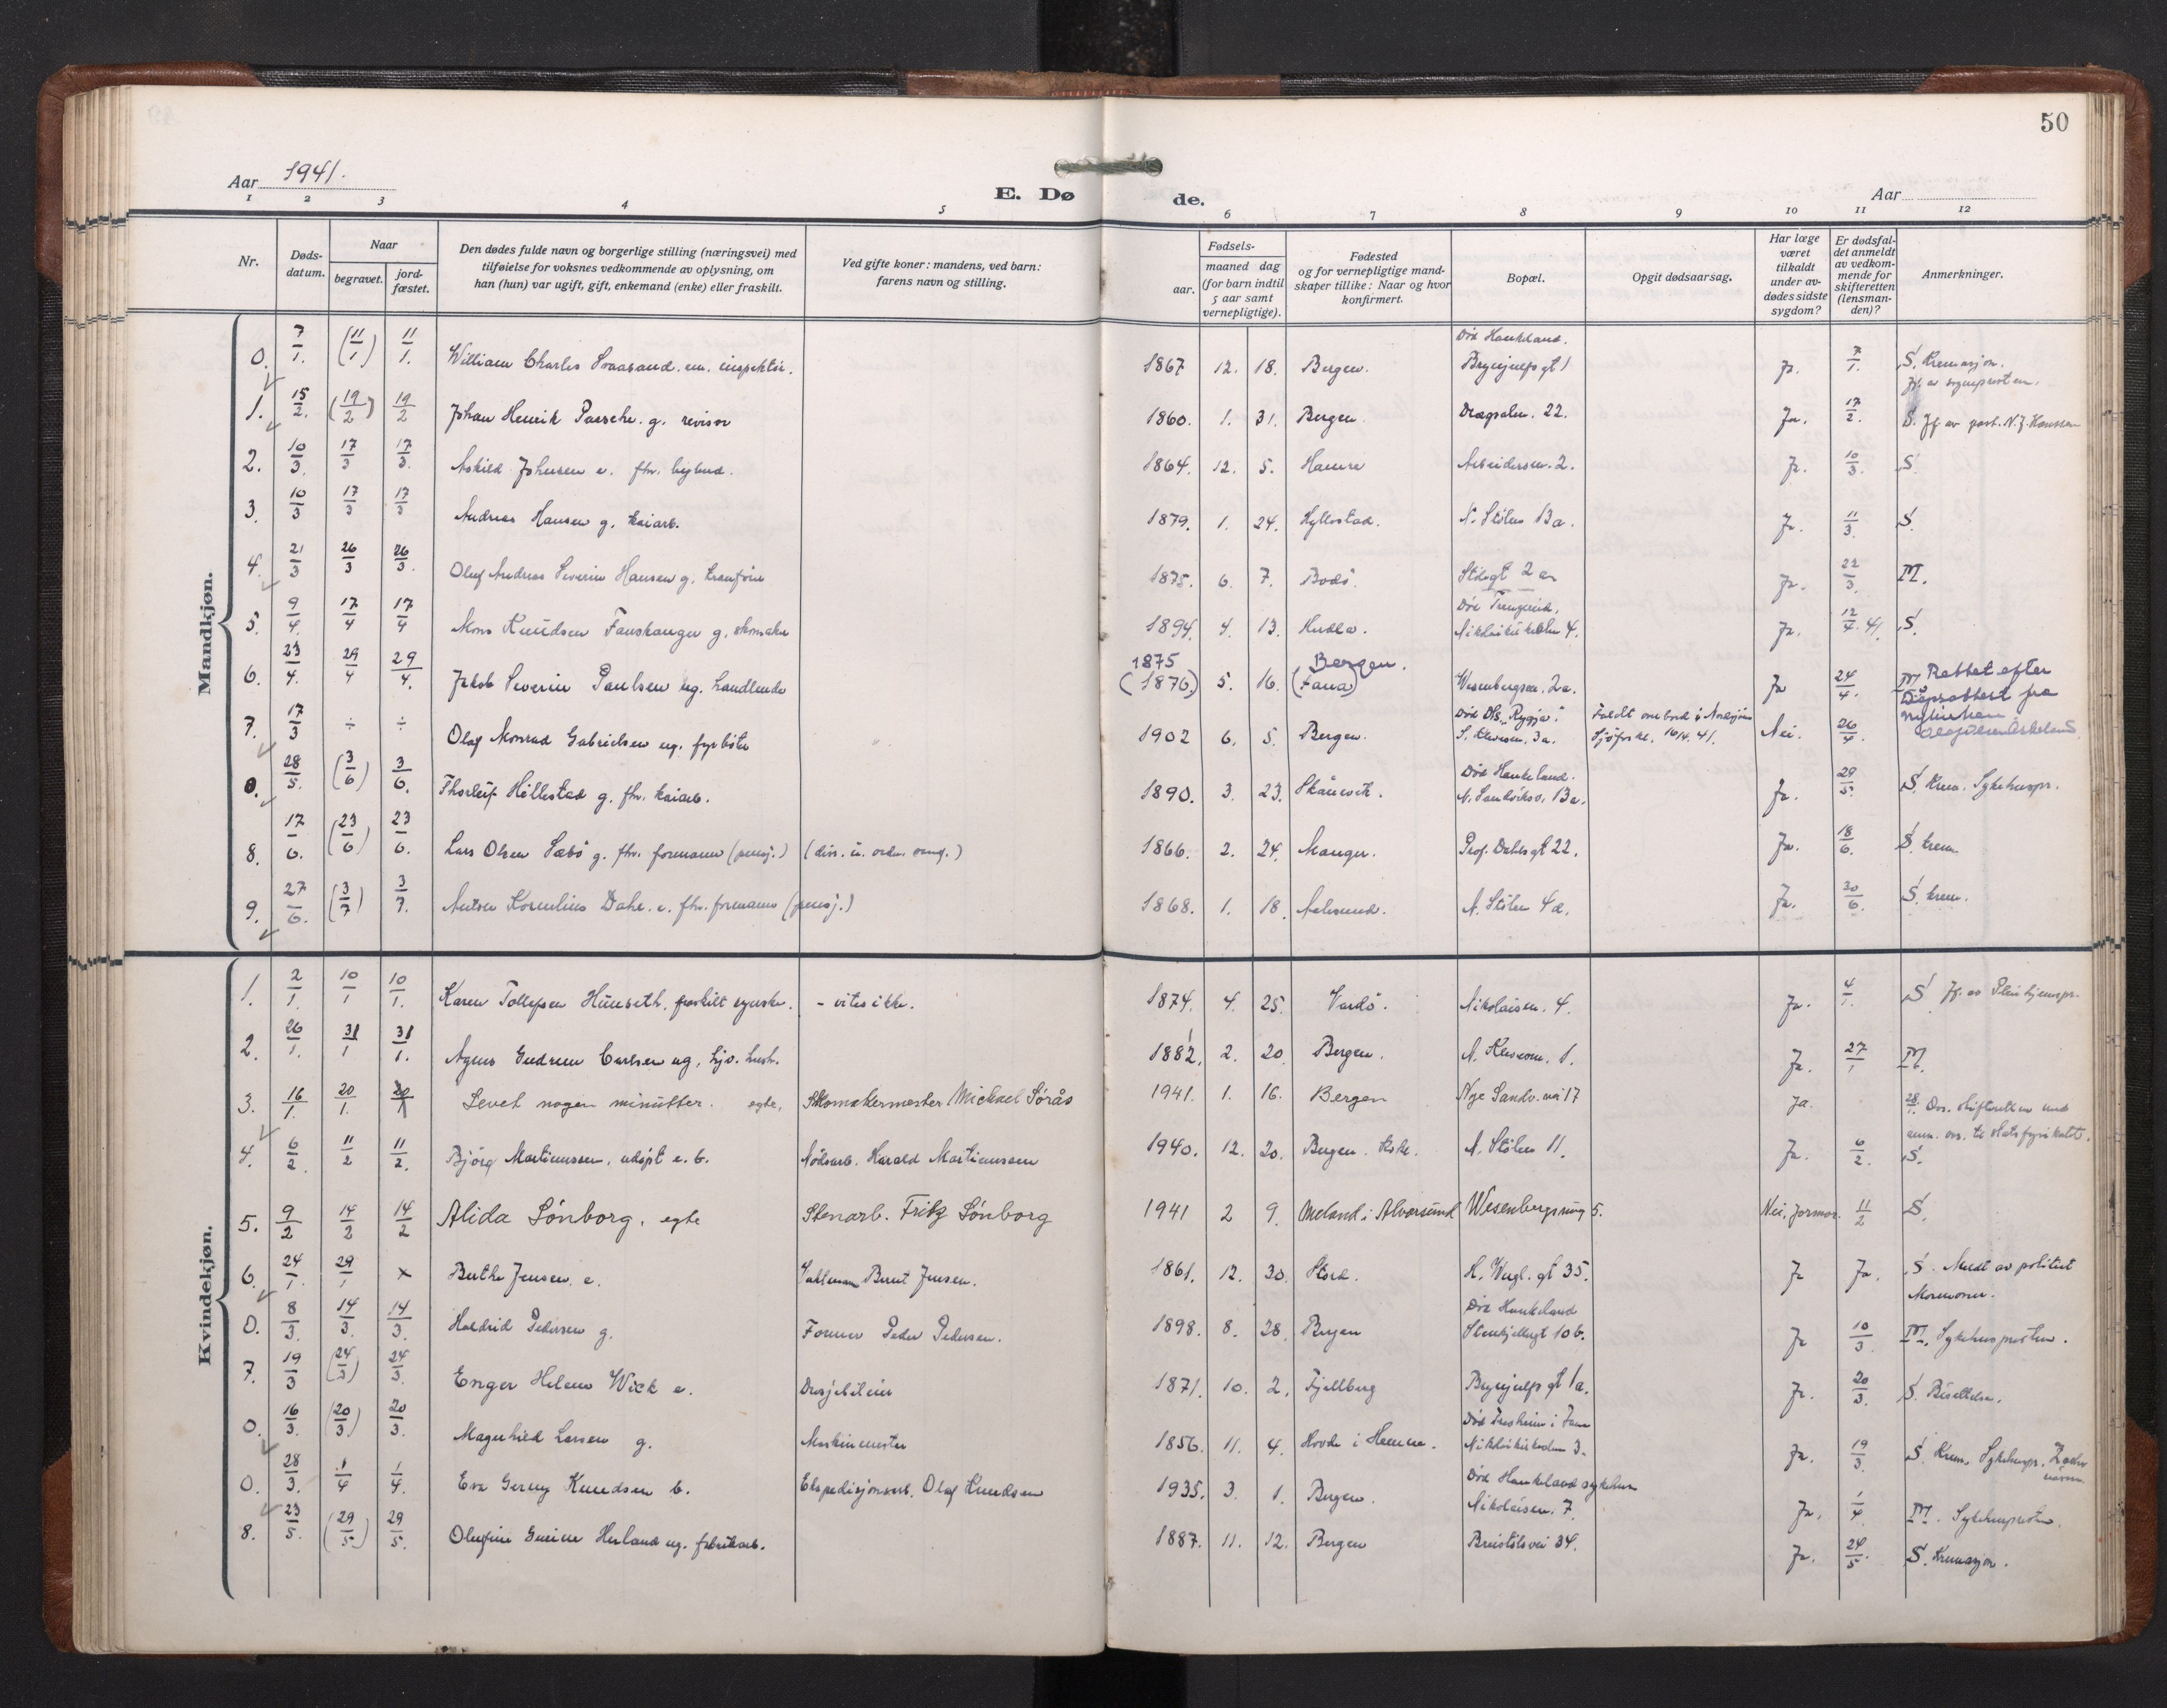 50
Aar 1941.
E. Døde.
Aar
1 2 3 4 5 6 7 8 9 10 11 12
Nr.
Døds-
datum.
Naar
begravet.
jord-
fæstet.
Den dødes fulde navn og borgerlige stilling (næringsvei) med
tilføielse for voksnes vedkommende av oplysning, om
han (hun) var ugift, gift, enkemand (enke) eller fraskilt.
Ved gifte koner: mandens, ved barn:
farens navn og stilling.
Fødsels-
aar.
maaned dag
(for barn indtil
5 aar samt
vernepligtige).
Fødested
og for vernepligtige mand-
skaper tillike: Naar og hvor
konfirmert.
Bopæl.
Opgit dødsaarsag.
Har læge
været
tilkaldt
under av-
dødes sidste
sygdom?
Er dødsfal-
det anmeldt
av vedkom-
mende for
skifteretten
(lensman-
den)?
Anmerkninger.
Mandkjøn.
Død Haukeland.
0. 7/1. (11/1) 11/1. William Charles em. inspektør. 1867 12. 18. Bergen. gt 1 Ja. 7/1. S. Kremasjon.
1. 15/2. (19/2) 19/2 Johan Henrik Paasche. g. revisor 1860. 1. 31. Bergen. 22. Ja. 17/2. S. Jf. av past. N. J. Hanssen
2. 10/3. 17/3 17/3. Askild Johnsen e. fhv. bybud. 1864. 12. 5. Hamre 2. Ja. 10/3. S.
3. 10/3 17/3 17/3 Andreas Hansen g. kaiarb. 1879. 1. 24. Hyllestad. N. Stølen 13a. Ja. 11/3. S.
4. 21/3 26/3 26/3. Olaf Andreas Severin Hansen g. kranfører 1875. 6. 7. Bodø. 2a Ja. 22/3. M.
5. 9/4. 17/4 17/4 Mons Knudsen Fauskanger g. skomaker 1894. 4. 13. Nikolaikirkealm 4. Ja. 12/4. 41. S.
1875 Bergen.
6. 23/4. 29/4 29/4. Jakob Severin Paulsen ug. handlende (1876) 5. 16. (Fana) Wesenbergsm. 2a. Ja 24/4. M. Rettet efter
Dåpsattest fra
Nykirken
Død D/S. "Rygja". Faldt overbord i Nordsjøen
7. 17/3 ÷ ÷ Olaf Monrad Gabrielsen ug. fyrbøter " 1902 6. 5. Bergen. 3a. 16/4. 41. Nei. 26/4.
Død Haukeland.
0. 28/5. (3/6) 3/6. Thorleif Hellestad g. fhv. kaiarb. 1890. 3. 23. Skånevik. N. Sandviksv. 13a. Ja. 29/5. S. Krem. Sykehuspr.
8. 17/6. (23/6) 23/6. Lars Olsen Sæbø g. fhv. formann (pensj.) 1866. 2. 24. Manger. Prof. Dahls gt 22. Ja. 18/6. S. krem.
9. 27/6. (3/7) 3/7. Kornelius Dahl. e. fhv. formann (pensj.) 1868. 1. 18. Aalesund. N. Stølen 4a. Ja. 30/6. S. krem.
Kvindekjøn.
1. 2/1. 10/1 10/1. Karen Tollefsen Hunseth, fraskilt syerske. - vites ikke. 1874. 4. 25. Vardø. Nikolaism. 4. Ja. 4/1. S Jf. av Pleiehjemspr.
2. 26/1. 31/1 31/1. Agnes Gudrun Carlsen ug. 1882. 2. 20. Bergen. 1. Ja. 27/1 M.
3. 16/1. 20/1. 20/1 Levet nogen minutter. egte, Skomakermester Michael Sørås 1941. 1. 16. Bergen Nye Sandv. vei 17 Ja. 28/1.
4. 6/2. 11/2 11/2. Bjørg Martinussen, udøpt e. b. Nødsarb. Harald Martinussen 1940. 12. 20. Bergen. N. Stølen 11. Ja. 6/2. S.
5. 9/2 14/2 14/2 Alida Sønborg. egte Stenarb. Fritz Sønborg 1941 2 9. Meland i Alversund Wesenbergsmug 5. Nei, jormor. 11/2 S.
6. 24/1. 29/1 x Berthe Jensen. e. Bernt Jensen. 1861. 12. 30. Stord. gt 35. Ja Ja. S. Meldt av politiet
Mormoner.
Død Haukeland
0. 8/3. 14/3. 14/3. Haldrid Pedersen g. Former Peder Pedersen. 1898. 8. 28. Bergen Stenkjellergt 10b. Ja 10/3. M. Sykehuspresten.
7. 19/3 (24/3) 24/3. Enger Helene Wick e. Drosjebileier 1871. 10. 2. Fjellberg gt 1a. Ja. 20/3. S. Bisettelse.
0. 16/3. (20/3) 20/3. Magnhild Larsen g. Maskinmester 1856. 11. 4. Hovde i 3. Ja. 19/3. S. Krem. Sykehuspr.
Død Haukeland sykehus
0. 28/3. 1/4 1/4. Eva Gerny Knudsen b. Ekspedisjonsarb. Olaf Knudsen 1935. 3. 1. Bergen. Nikolaism. 7. Ja. 1/4. M. Sykehuspresten.
8. 23/5. (29/5) 29/5. Olufine Herland ug. fabrikarb. 1887. 11. 12. Bergen Breistølsvei 34. Ja. 24/5. S. Kremasjon.